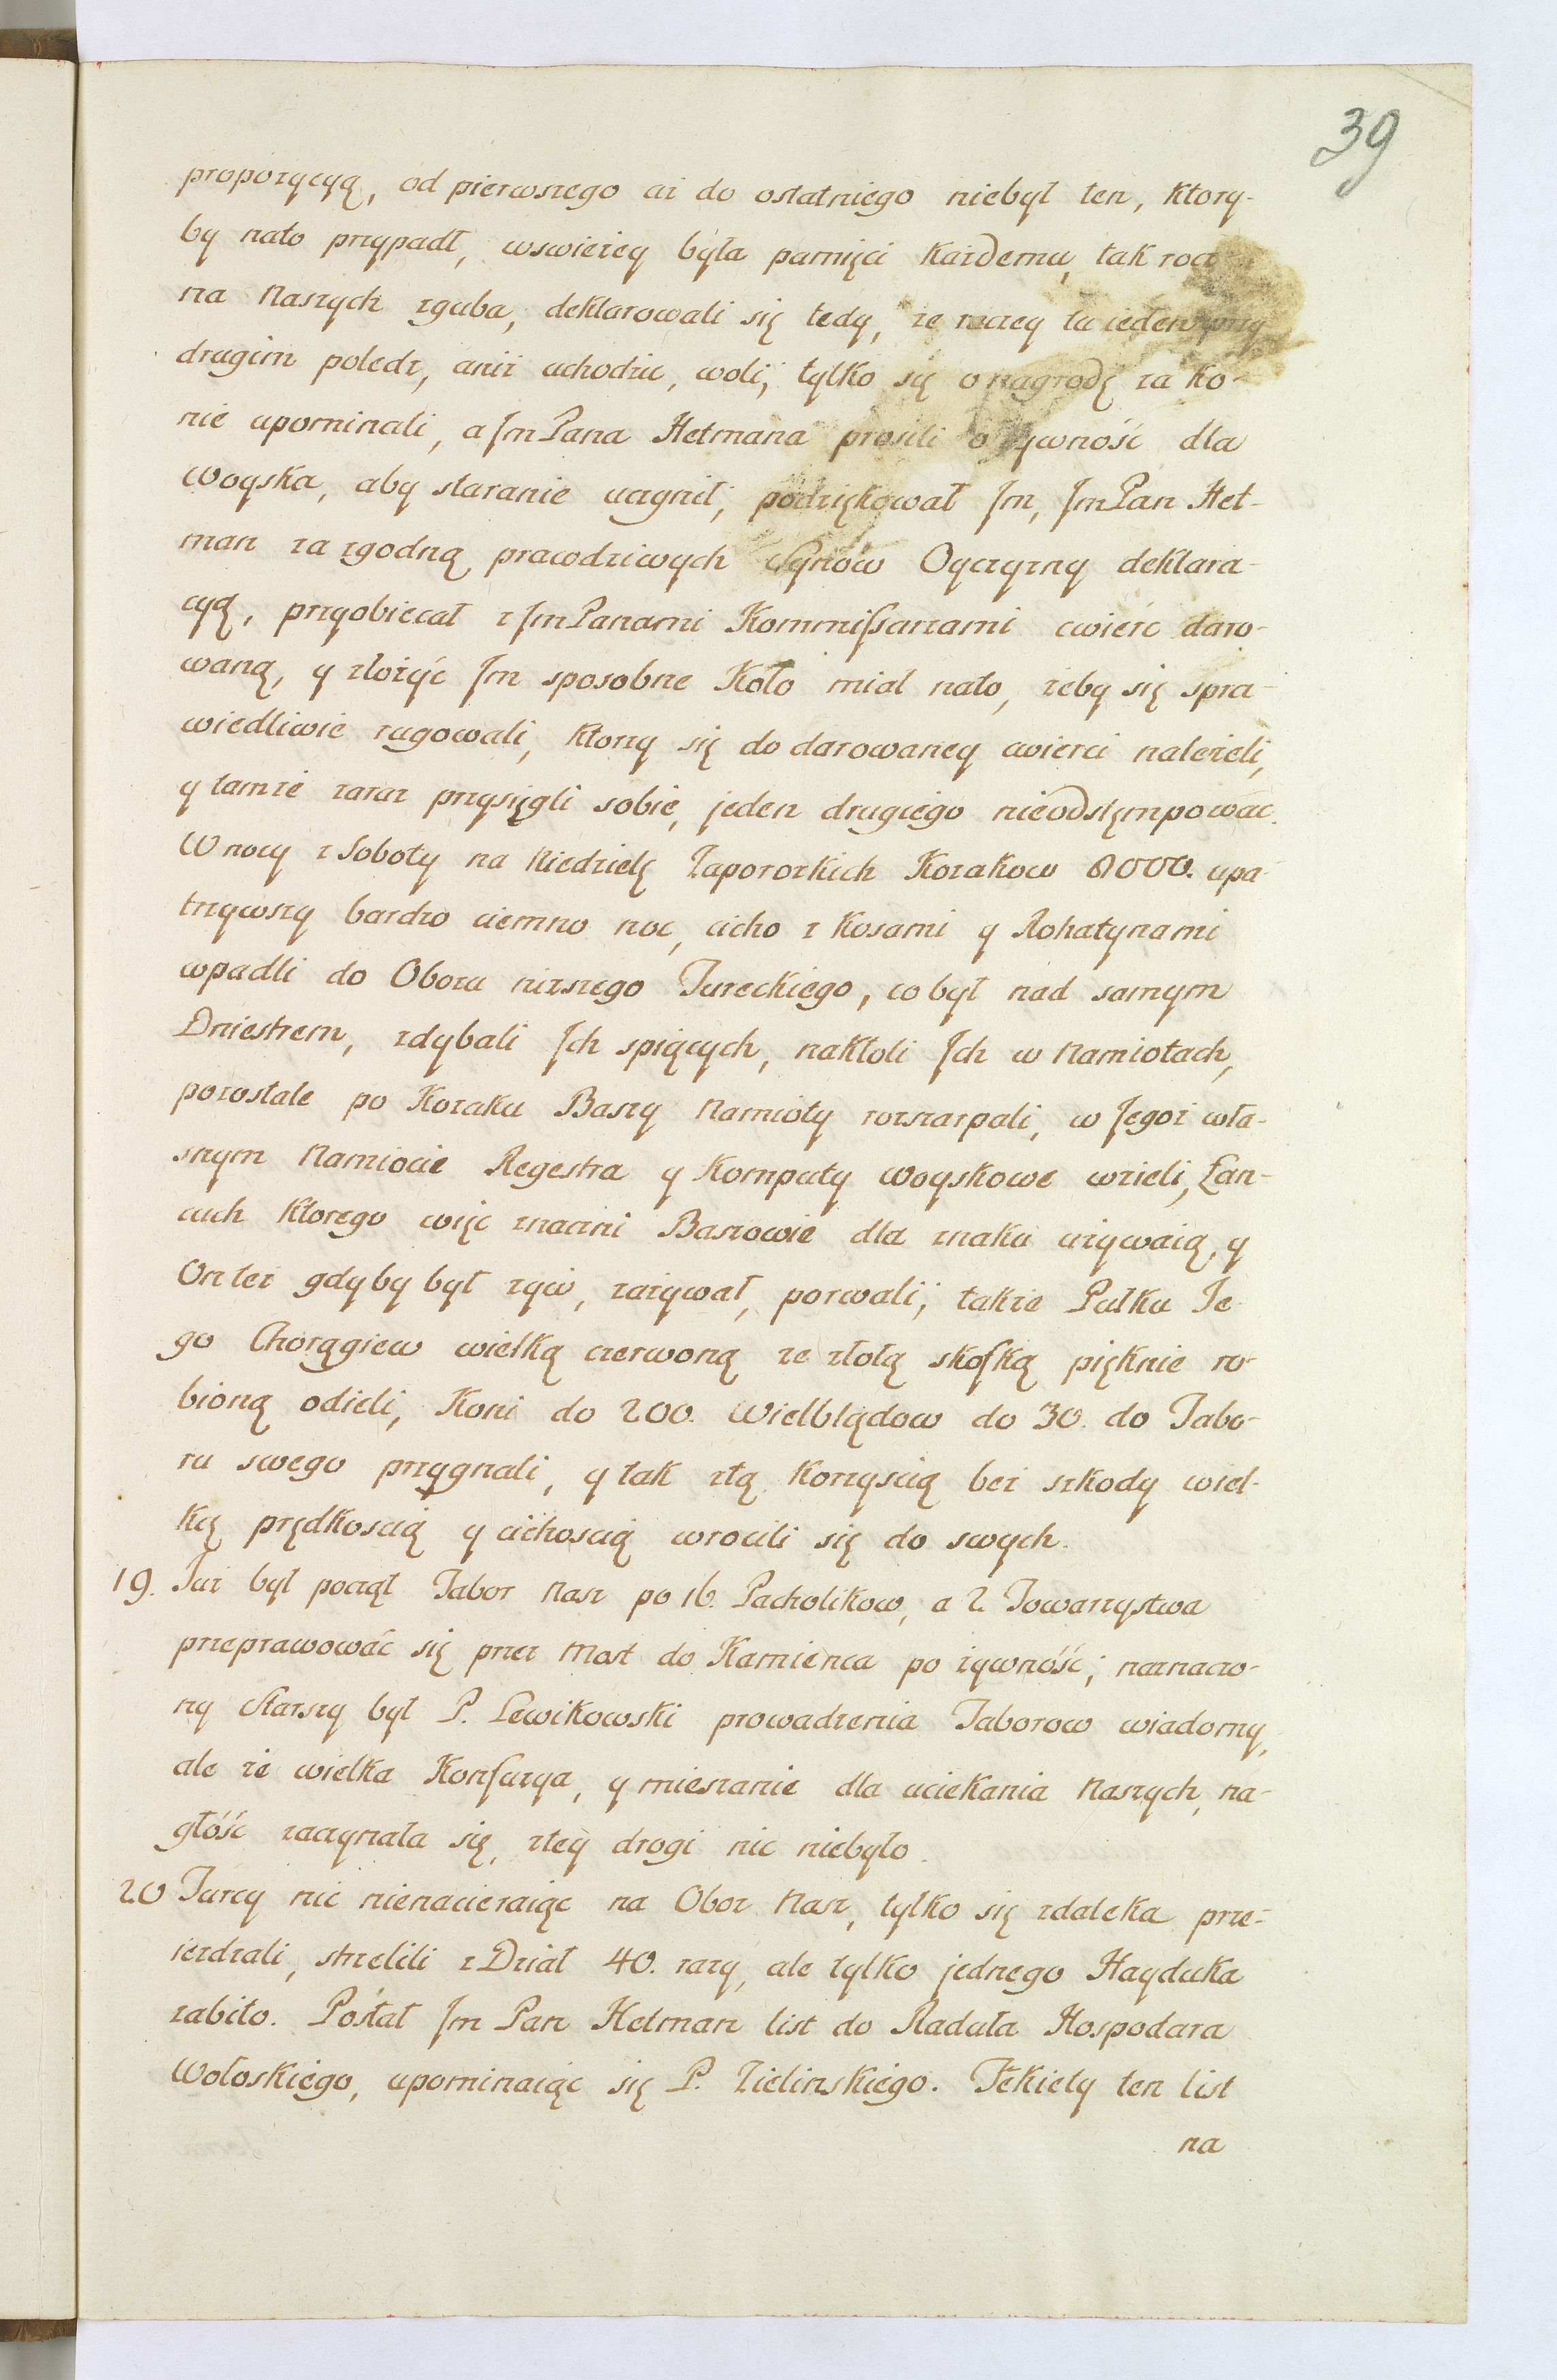 39
proporzycyą, od pierwszego aż do ostatniego niebył ten, ktory-
by nato przypadł, wswieżey była pamięci każdemu, tak rocz
na Naszych zguba, deklarowali się tedy, że raczey tu ieden przy
drugim poledz, aniż uchodzic, woli, tylko się o nagrodę za ko-
nie upominali, a Jm Pana Hetmana prosili o żywność dla
Woyska, aby staranie uczynił, podziękował Jm, Jm Pan Het-
man za zgodną prawdziwych Synow Oyczyzny deklara-
cyą, przyobiecał z Jm Panami Kommissarzami cwierć daro-
waną, y złożyć Jm sposobne Koło miał nato, żeby się spra-
wiedliwie rugowali, ktorzy się do darowaney cwierci należeli,
y tamże zaraz przysięgli sobie, jeden drugiego nieodstęmpować.
W nocy z Soboty na Niedzielę Zaporozkich Kozakow 8000. upa-
trzywszy bardzo ciemno noc, cicho z Kosami y Rohatynami
wpadli do Obozu niższego Tureckiego, co był nad samym
Dniestrem, zdybali Jch spiących, nakłoli Jch w Namiotach,
pozostałe po Kozaku Baszy Namioty rozszarpali, w Jegoż wła-
snym Namiocie Regestra y Komputy woyskowe wzieli, Łan-
cuch ktorego więc znaczni Baszowie dla znaku używaią, y
On też gdyby był żyw, zażywał, porwali, takze Pułku Je-
go Chorągiew wielką czerwoną ze złotą skofką pięknie ro-
bioną odieli, Koni do 200. Wielblądow do 30. do Tabo-
ru swego przygnali, y tak ztą korzyscią bez szkody wiel-
kę prędkoscią y cichoscią wrocili się do swych.
19. Juz był począł Tabor Nasz po 16. Pacholikow, a 2. Towarzystwa
przeprawować się przez Most do Kamienca po żywność, naznaczo-
ny Starszy był P. Lewikowski prowadzenia Taborow wiadomy,
ale że wielka Konfuzya, y mieszanie dla uciekania Naszych, na-
głość zaczynała się, ztey drogi nic niebyło.
20 Turcy nic nienacieraiąc na Oboz Nasz, tylko się zdaleka prze-
ieżdzali, strzelili z Dział 40. razy, ale tylko jednego Hayduka
zabito. Posłał Jm Pan Hetman list do Raduła Hospodara
Wołoskiego, upominaiąc się P. Zielinskiego. Tekiety ten list
na